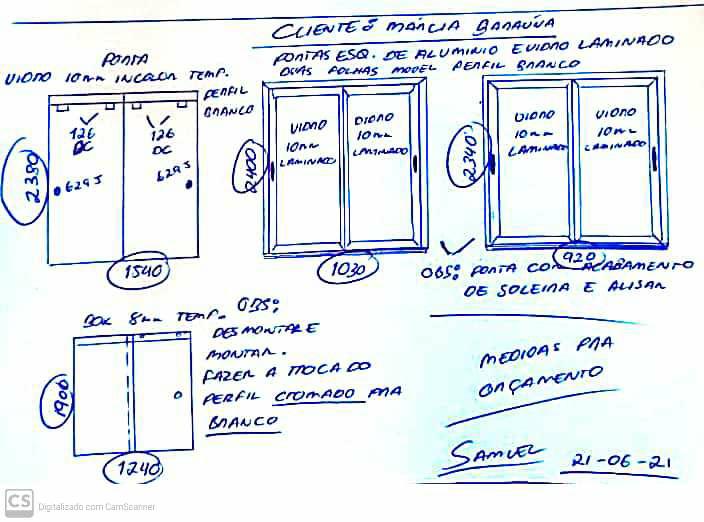 CLIENTE: MÁRCIA BARAÚNA
PORTA
VIDRO 10mm INCOLOR TEMP.
PERFIL
BRANCO
126
DC
126
DC
629J
629J
2380
1540
PORTAS ESQ. DE ALUMINIO E VIDRO LAMINADO
DUAS FOLHAS MODEL PERFIL BRANCO
VIDRO
10mm
LAMINADO
VIDRO
10mm
LAMINADO
2400
1030
VIDRO
10mm
LAMINADO
VIDRO
10mm
LAMINADO
2340
920
OBS: PORTA COM ACABAMENTO
DE SOLEIRA E ALISAR
BOX 8mm TEMP.
1900
1240
OBS:
DESMONTAR E
MONTAR.
FAZER A TROCA DO
PERFIL CROMADO PRA
BRANCO
MEDIDAS PRA
ORÇAMENTO
SAMUEL
21-06-21
CS
Digitalizado com CamScanner